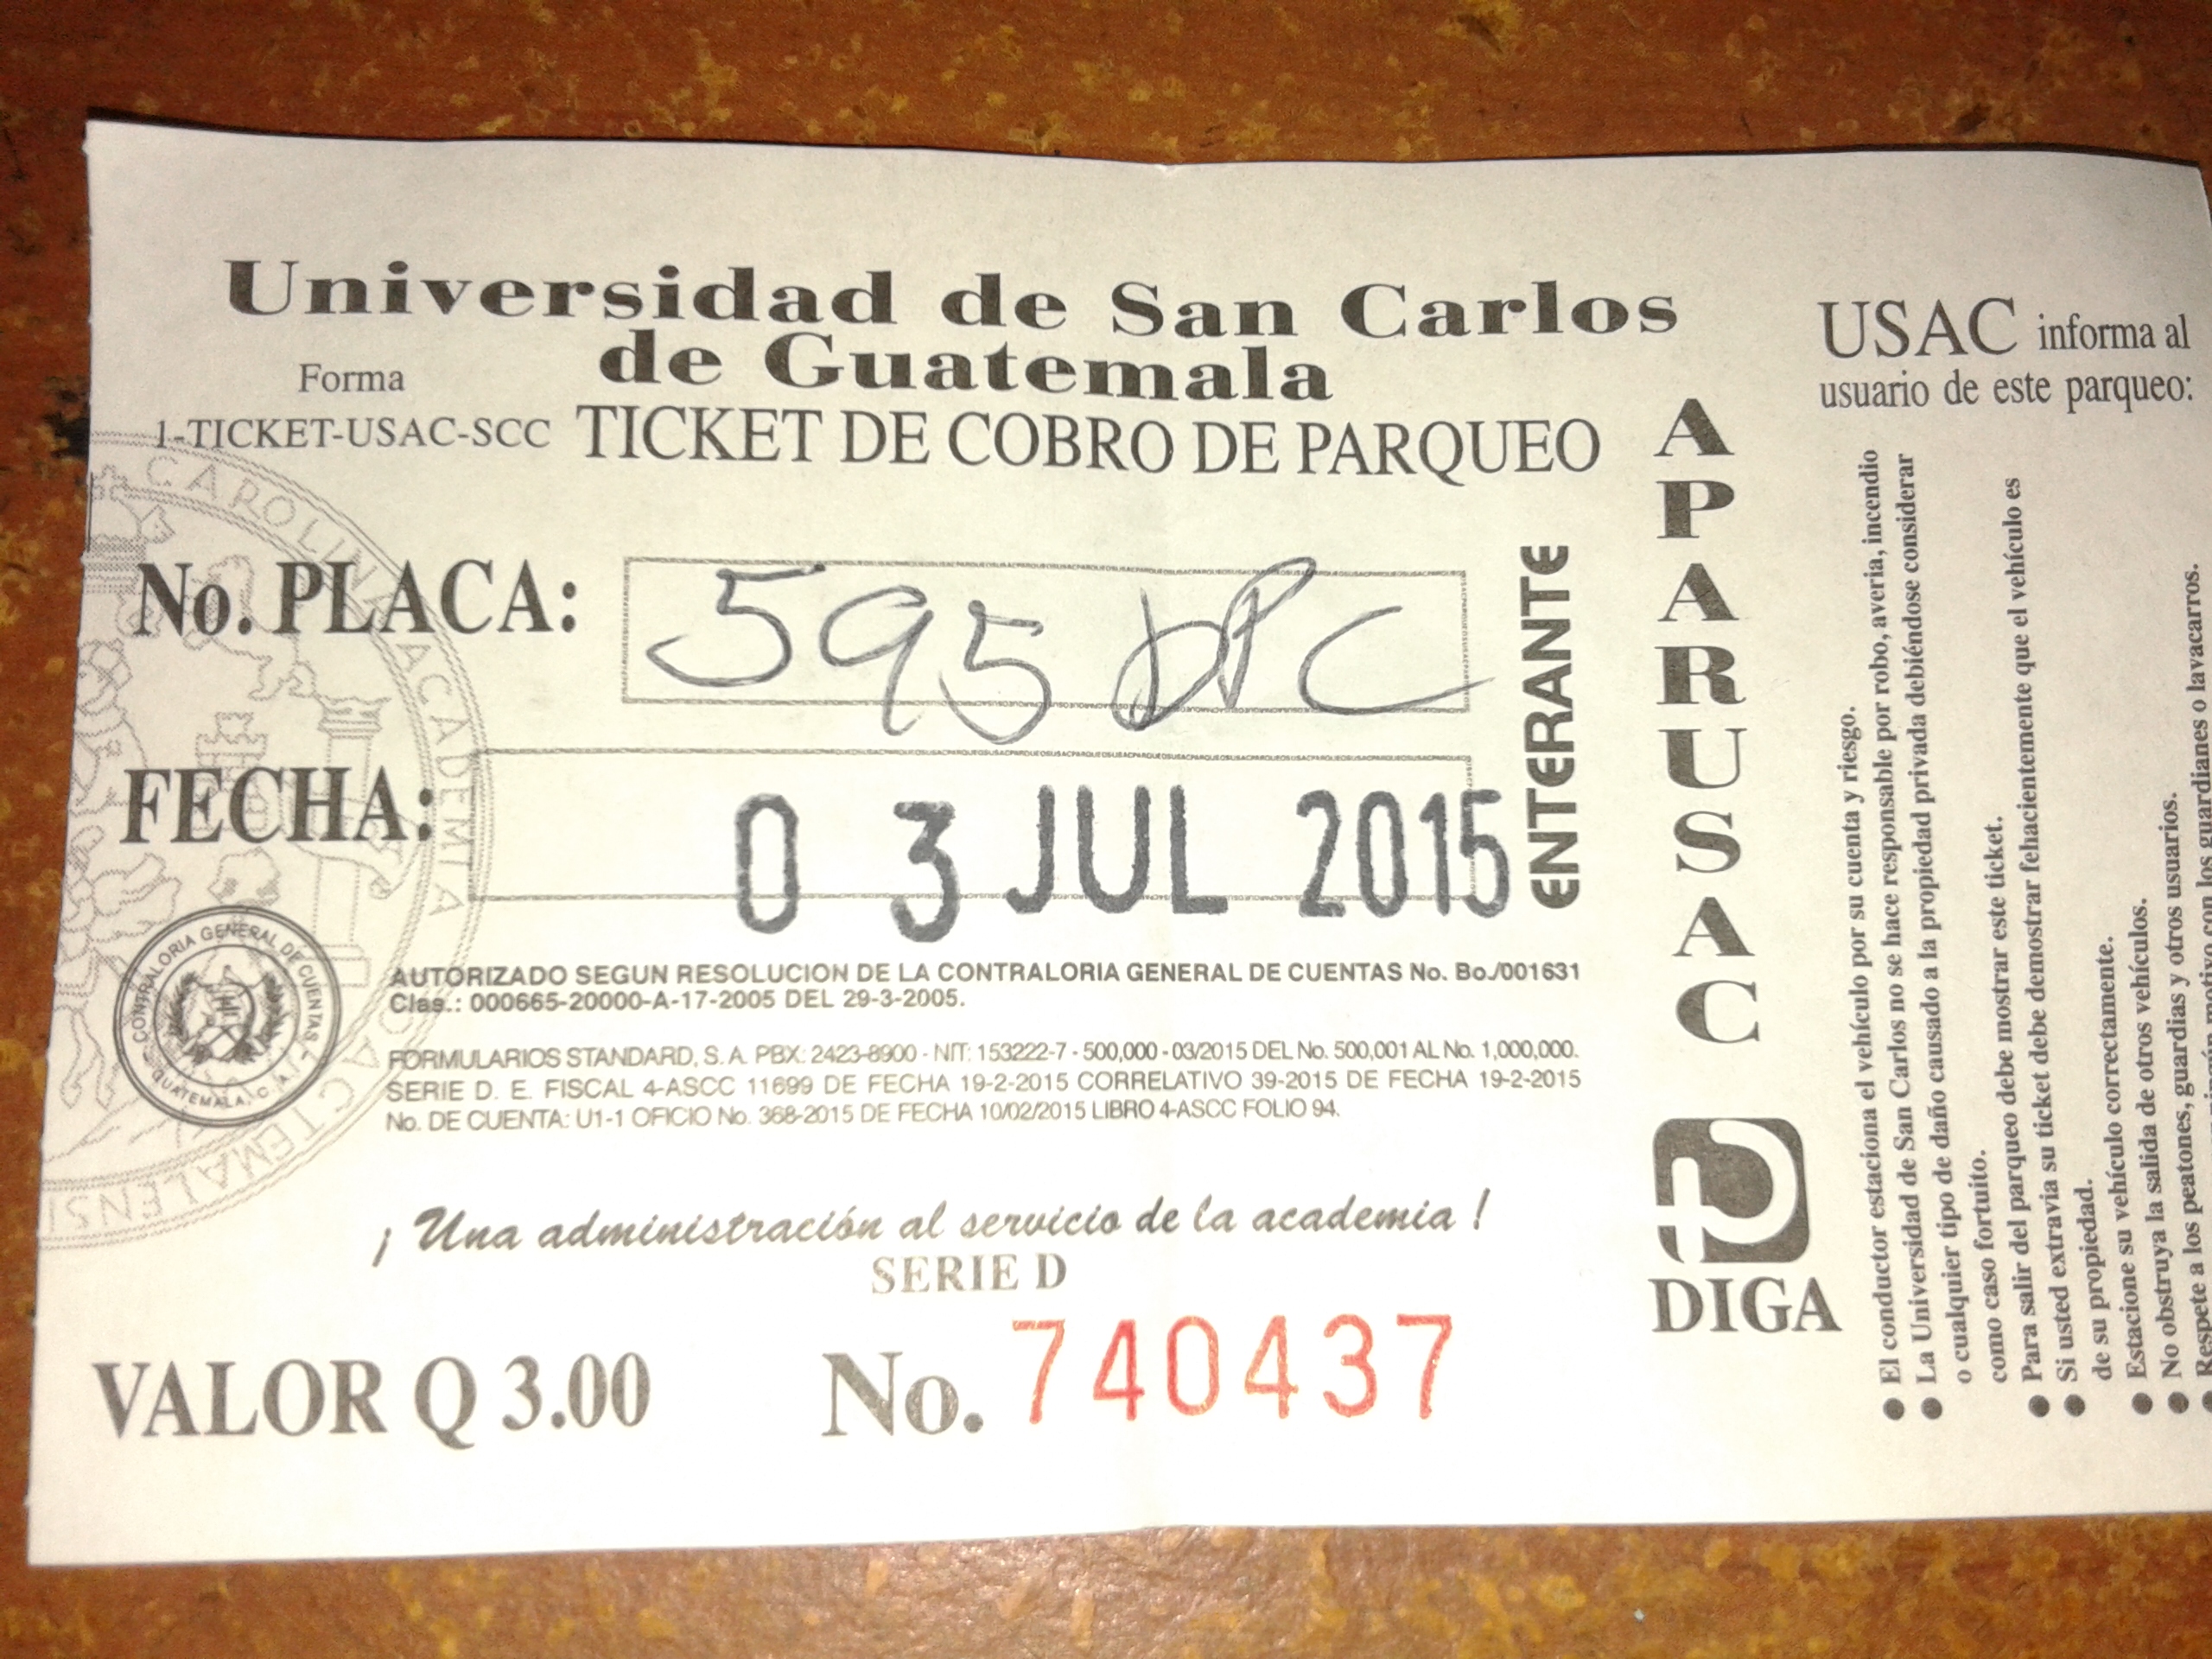 Universidad de San Carlos
de Guatemala
Forma
1-TICKET-USAC-SCC
TICKET DE COBRO DE PARQUEO
No. PLACA: 595 DPC
FECHA: 03 JUL 2015
ENTERANTE
CAROLINA ACADEMIA
CONTRALORIA GENERAL DE CUENTAS
GUATEMALA, C. A.
AUTORIZADO SEGUN RESOLUCION DE LA CONTRALORIA GENERAL DE CUENTAS No. Bo./001631
Clas.: 000665-20000-A-17-2005 DEL 29-3-2005.
FORMULARIOS STANDARD, S. A. PBX: 2423-8900 - NIT: 153222-7 - 500,000 - 03/2015 DEL No. 500,001 AL No. 1,000,000.
SERIE D. E. FISCAL 4-ASCC 11699 DE FECHA 19-2-2015 CORRELATIVO 39-2015 DE FECHA 19-2-2015
No. DE CUENTA: U1-1 OFICIO No. 368-2015 DE FECHA 10/02/2015 LIBRO 4-ASCC FOLIO 94.
¡ Una administración al servicio de la academia !
SERIE D
VALOR Q 3.00
No. 740437
APARUSAC
DIGA
USAC informa al
usuario de este parqueo:
● El conductor estaciona el vehículo por su cuenta y riesgo.
● La Universidad de San Carlos no se hace responsable por robo, averia, incendio
o cualquier tipo de daño causado a la propiedad privada debiéndose considerar
como caso fortuito.
● Para salir del parqueo debe mostrar este ticket.
● Si usted extravia su ticket debe demostrar fehacientemente que el vehículo es
de su propiedad.
● Estacione su vehículo correctamente.
● No obstruya la salida de otros vehículos.
● Respete a los peatones, guardias y otros usuarios.
motivo con los guardianes o lavacarros.